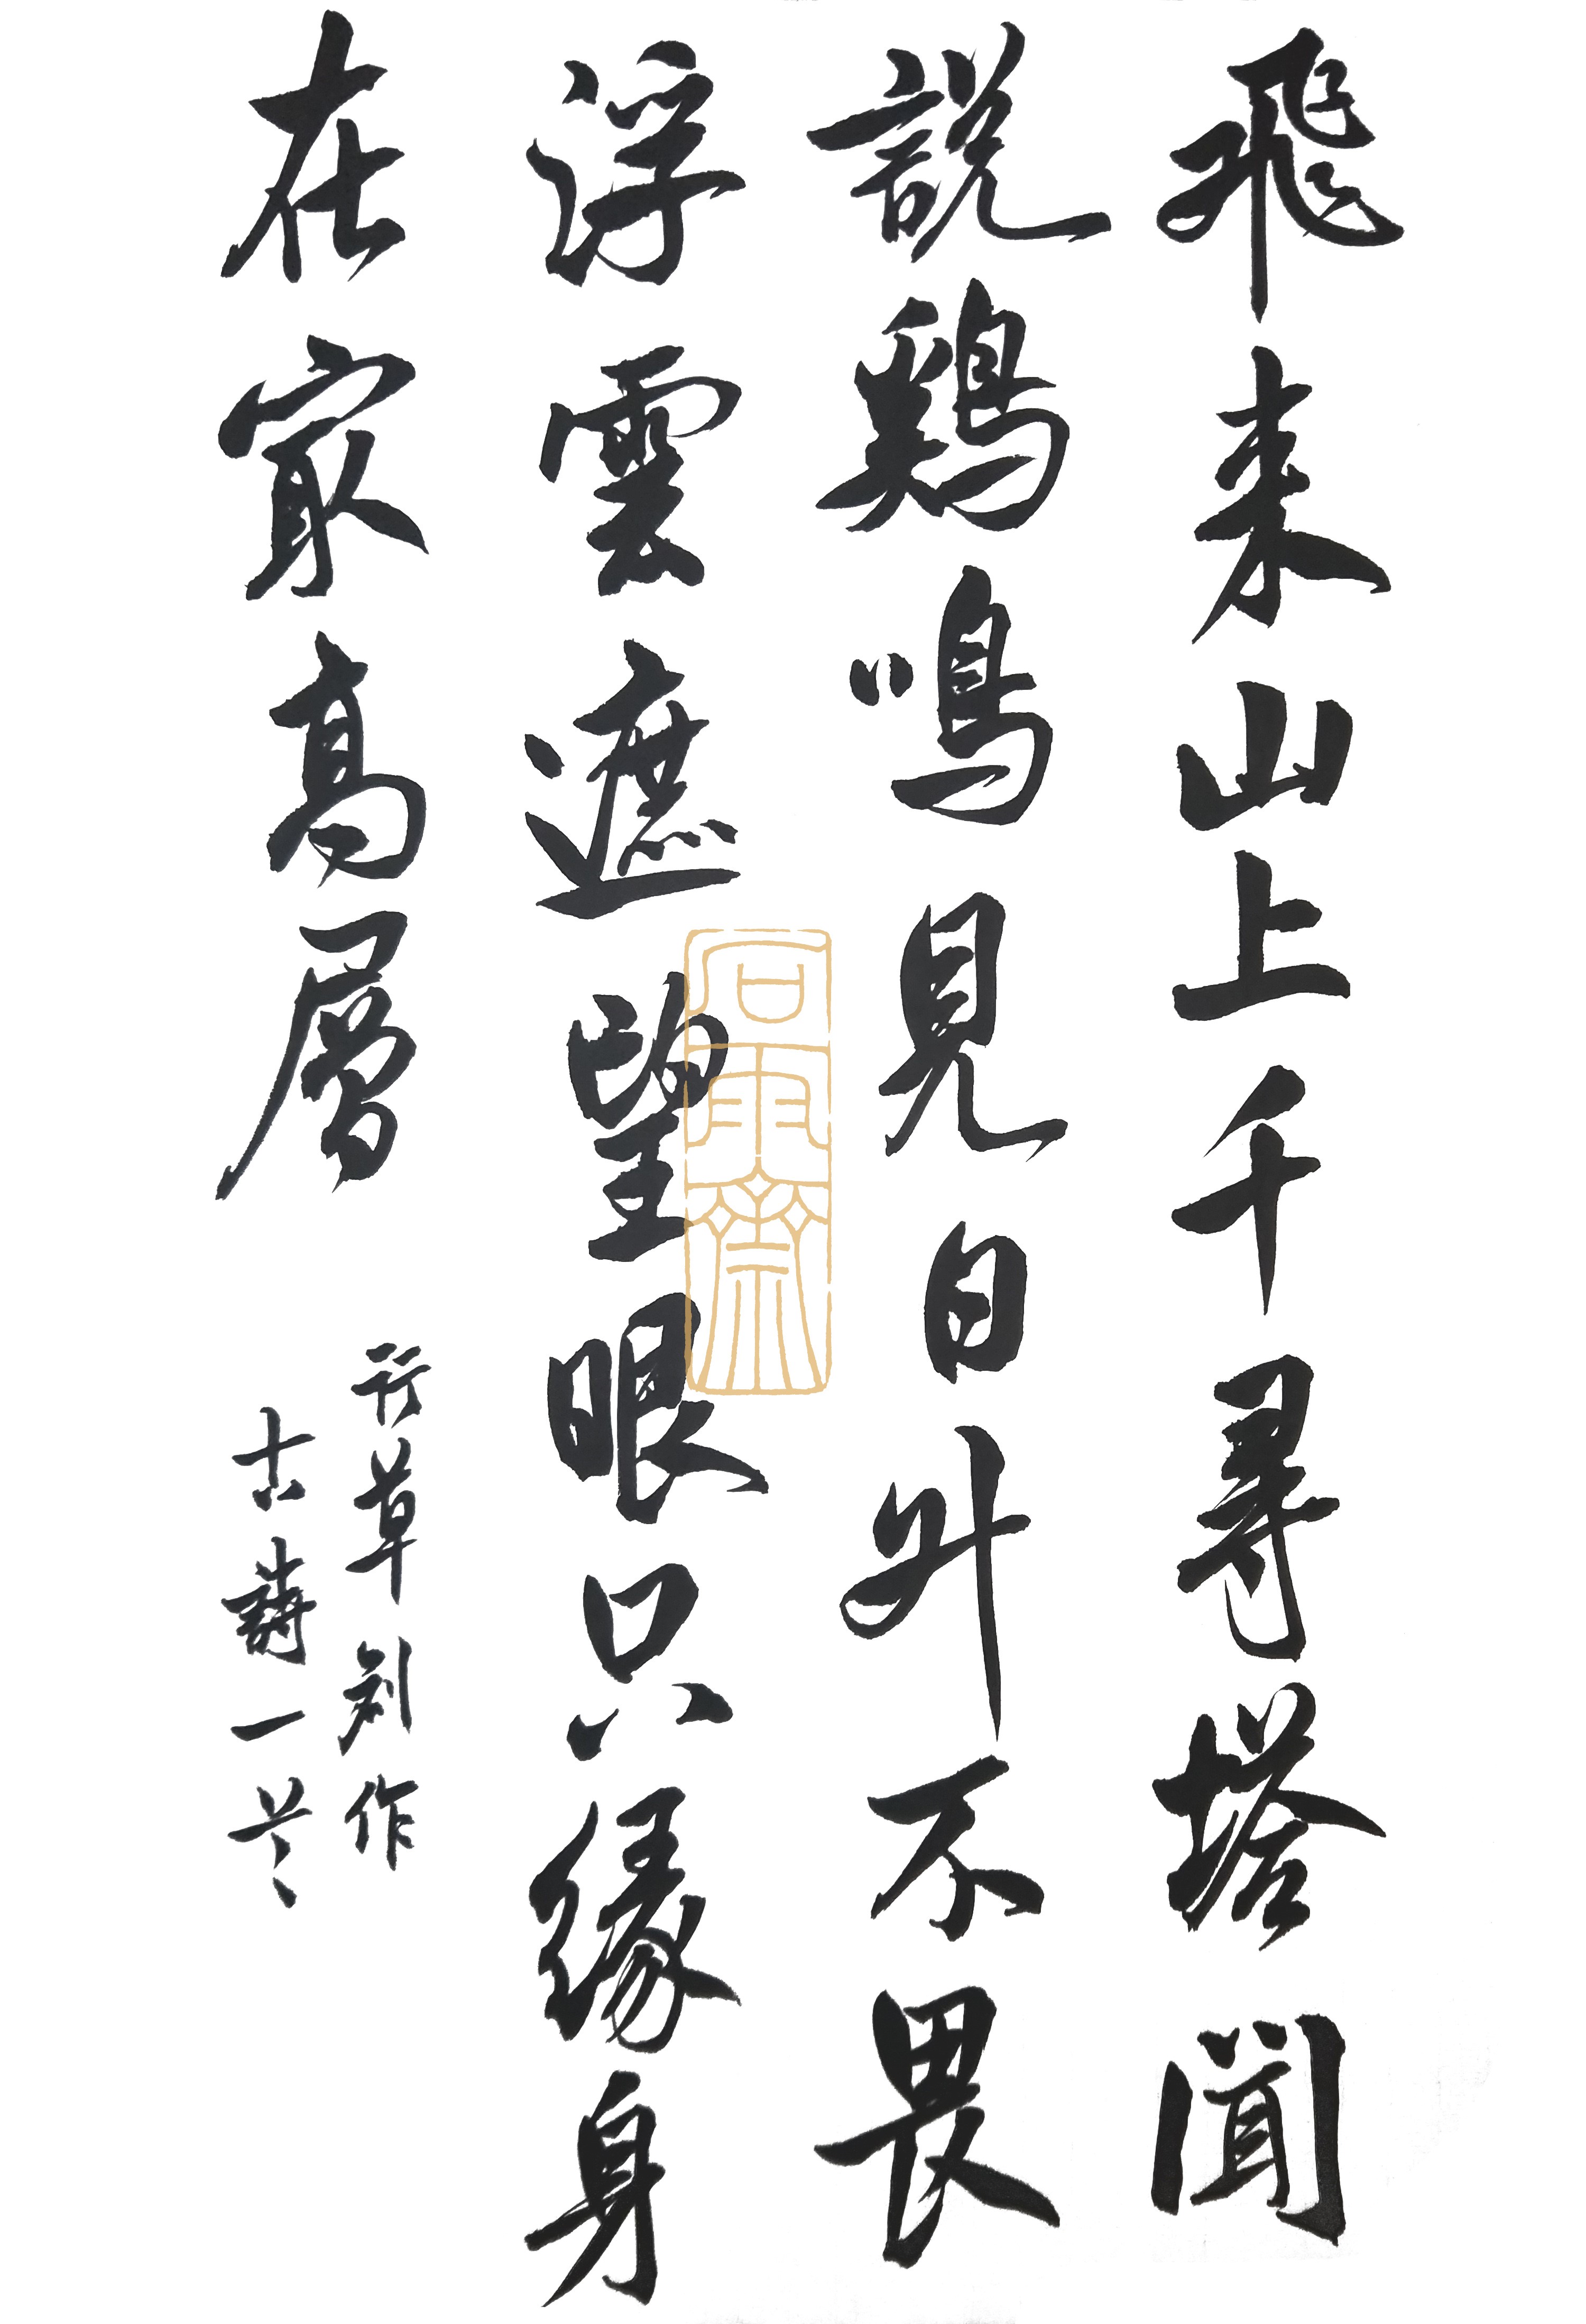 飛来山上千尋塔聞
說鷄鳴見日升不畏
浮雲遮望眼只緣身
在最高層
行草創作
古詩一首
石雨齋